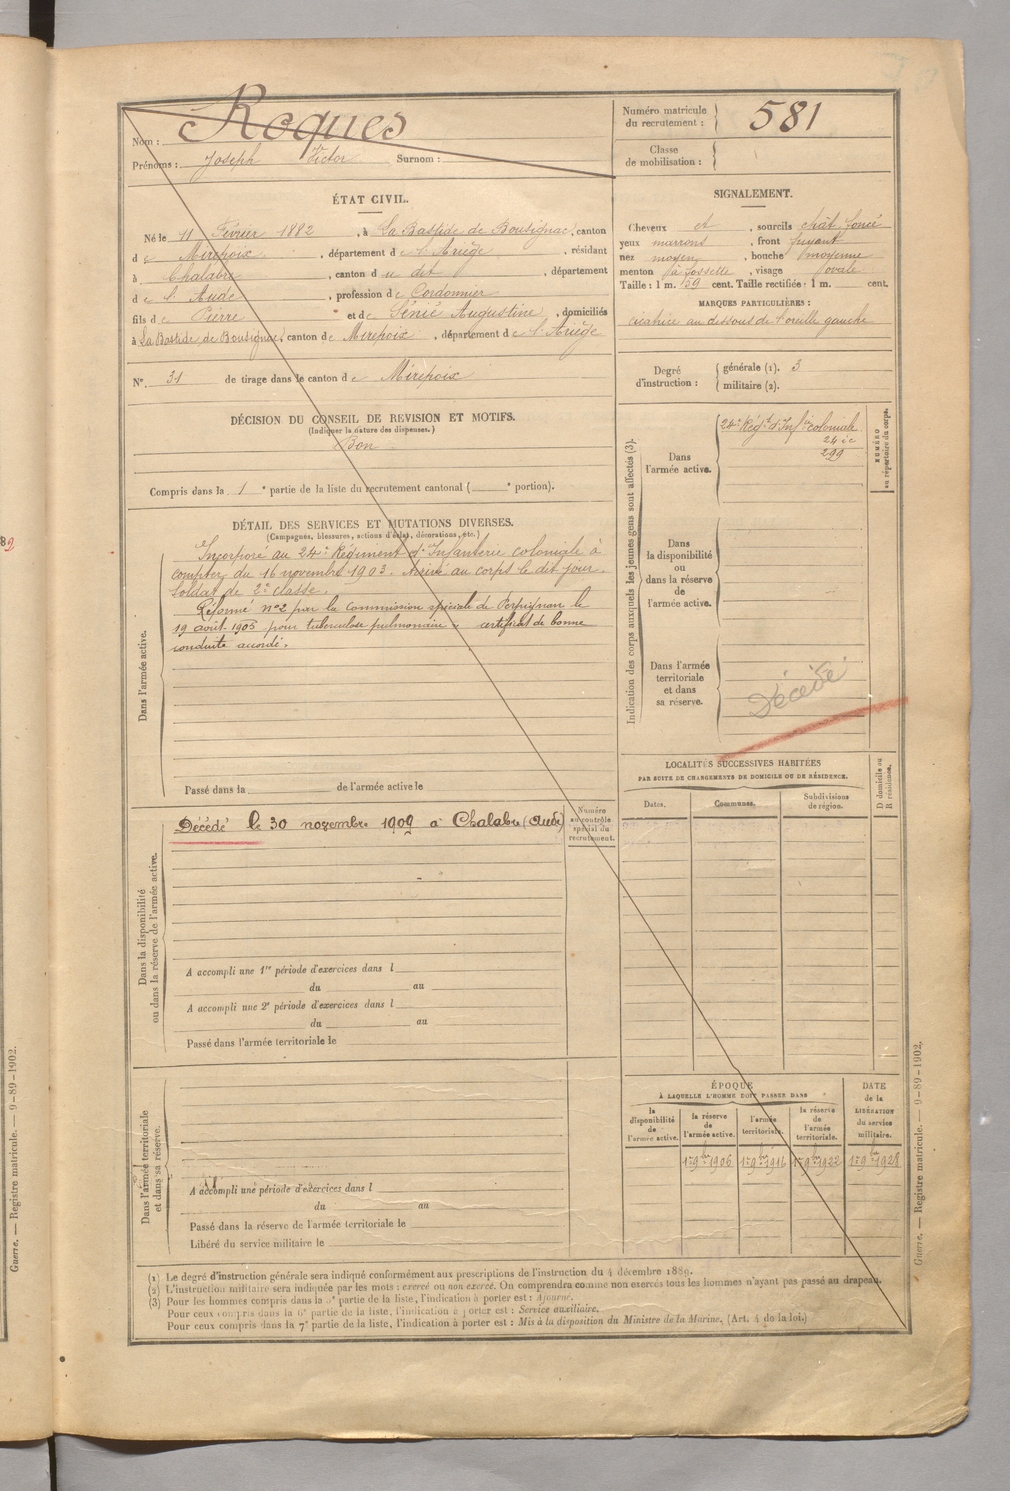 Nom : Roques
Prénoms : Joseph Victor Surnom :
Numéro matricule du recrutement : 581
Classe de mobilisation :
ÉTAT CIVIL.
Né le 11 Février 1882, à La Bastide de Bousignac, canton
de Mirepoix, département de l'Ariège, résidant
à Chalabre, canton du dit, département
de l'Aude, profession de Cordonnier
fils de Pierre et de Sénié Augustine, domiciliés
à La Bastide de Bousignac, canton de Mirepoix, département de l'Ariège
N° 31 de tirage dans le canton de Mirepoix
SIGNALEMENT.
Cheveux et, sourcils chât. foncé
yeux marrons, front fuyant
nez moyen, bouche moyenne
menton à fossette, visage ovale
Taille : 1 m. 59 cent. Taille rectifiée : 1 m. cent.
MARQUES PARTICULIÈRES :
cicatrice au dessous de l'oreille gauche
Degré d'instruction : générale (1). 3
militaire (2).
DÉCISION DU CONSEIL DE REVISION ET MOTIFS.
(Indiquer la nature des dispenses.)
Bon
Compris dans la 1e partie de la liste du recrutement cantonal ( e portion).
DÉTAIL DES SERVICES ET MUTATIONS DIVERSES.
(Campagnes, blessures, actions d'éclat, décorations, etc.)
Dans l'armée active.
Incorporé au 24e Régiment d'Infanterie coloniale à
compter du 16 novembre 1903. Arrivé au corps le dit jour.
Soldat de 2e classe.
Réformé n°2 par la Commission spéciale de Perpignan le
19 août 1905 pour tuberculose pulmonaire. certificat de bonne
conduite accordé.
Passé dans la de l'armée active le
Indication des corps auxquels les jeunes gens sont affectés (3).
Dans l'armée active.
24e Régt d'Infie coloniale
24 ic
299
NUMÉRO au répertoire du corps.
Dans la disponibilité ou dans la réserve de l'armée active.
Dans l'armée territoriale et dans sa réserve.
Décédé
Dans la disponibilité ou dans la réserve de l'armée active.
Décédé le 30 novembre 1909 à Chalabre (Aude)
Numéro au contrôle spécial du recrutement.
A accompli une 1re période d'exercices dans l
du au
A accompli une 2e période d'exercices dans l
du au
Passé dans l'armée territoriale le
LOCALITÉS SUCCESSIVES HABITÉES
PAR SUITE DE CHANGEMENTS DE DOMICILE OU DE RÉSIDENCE.
Dates. Communes. Subdivisions de région. D domicile ou R résidence.
Dans l'armée territoriale et dans sa réserve.
A accompli une période d'exercices dans l
du au
Passé dans la réserve de l'armée territoriale le
Libéré du service militaire le
ÉPOQUE
À LAQUELLE L'HOMME DOIT PASSER DANS
la disponibilité de l'armée active.
la réserve de l'armée active.
l'armée territoriale.
la réserve de l'armée territoriale.
DATE de la LIBÉRATION du service militaire.
1er 9bre 1906 1er 9bre 1916 1er 9bre 1922 1er 9bre 1928
(1) Le degré d'instruction générale sera indiqué conformément aux prescriptions de l'instruction du 4 décembre 1889.
(2) L'instruction militaire sera indiquée par les mots : exercé ou non exercé. On comprendra comme non exercés tous les hommes n'ayant pas passé au drapeau.
(3) Pour les hommes compris dans la 5e partie de la liste, l'indication à porter est : Ajourné.
Pour ceux compris dans la 6e partie de la liste, l'indication à porter est : Service auxiliaire.
Pour ceux compris dans la 7e partie de la liste, l'indication à porter est : Mis à la disposition du Ministre de la Marine. (Art. 4 de la loi.)
Guerre. — Registre matricule. — 9-89-1902.
Guerre. — Registre matricule. — 9-89-1902.